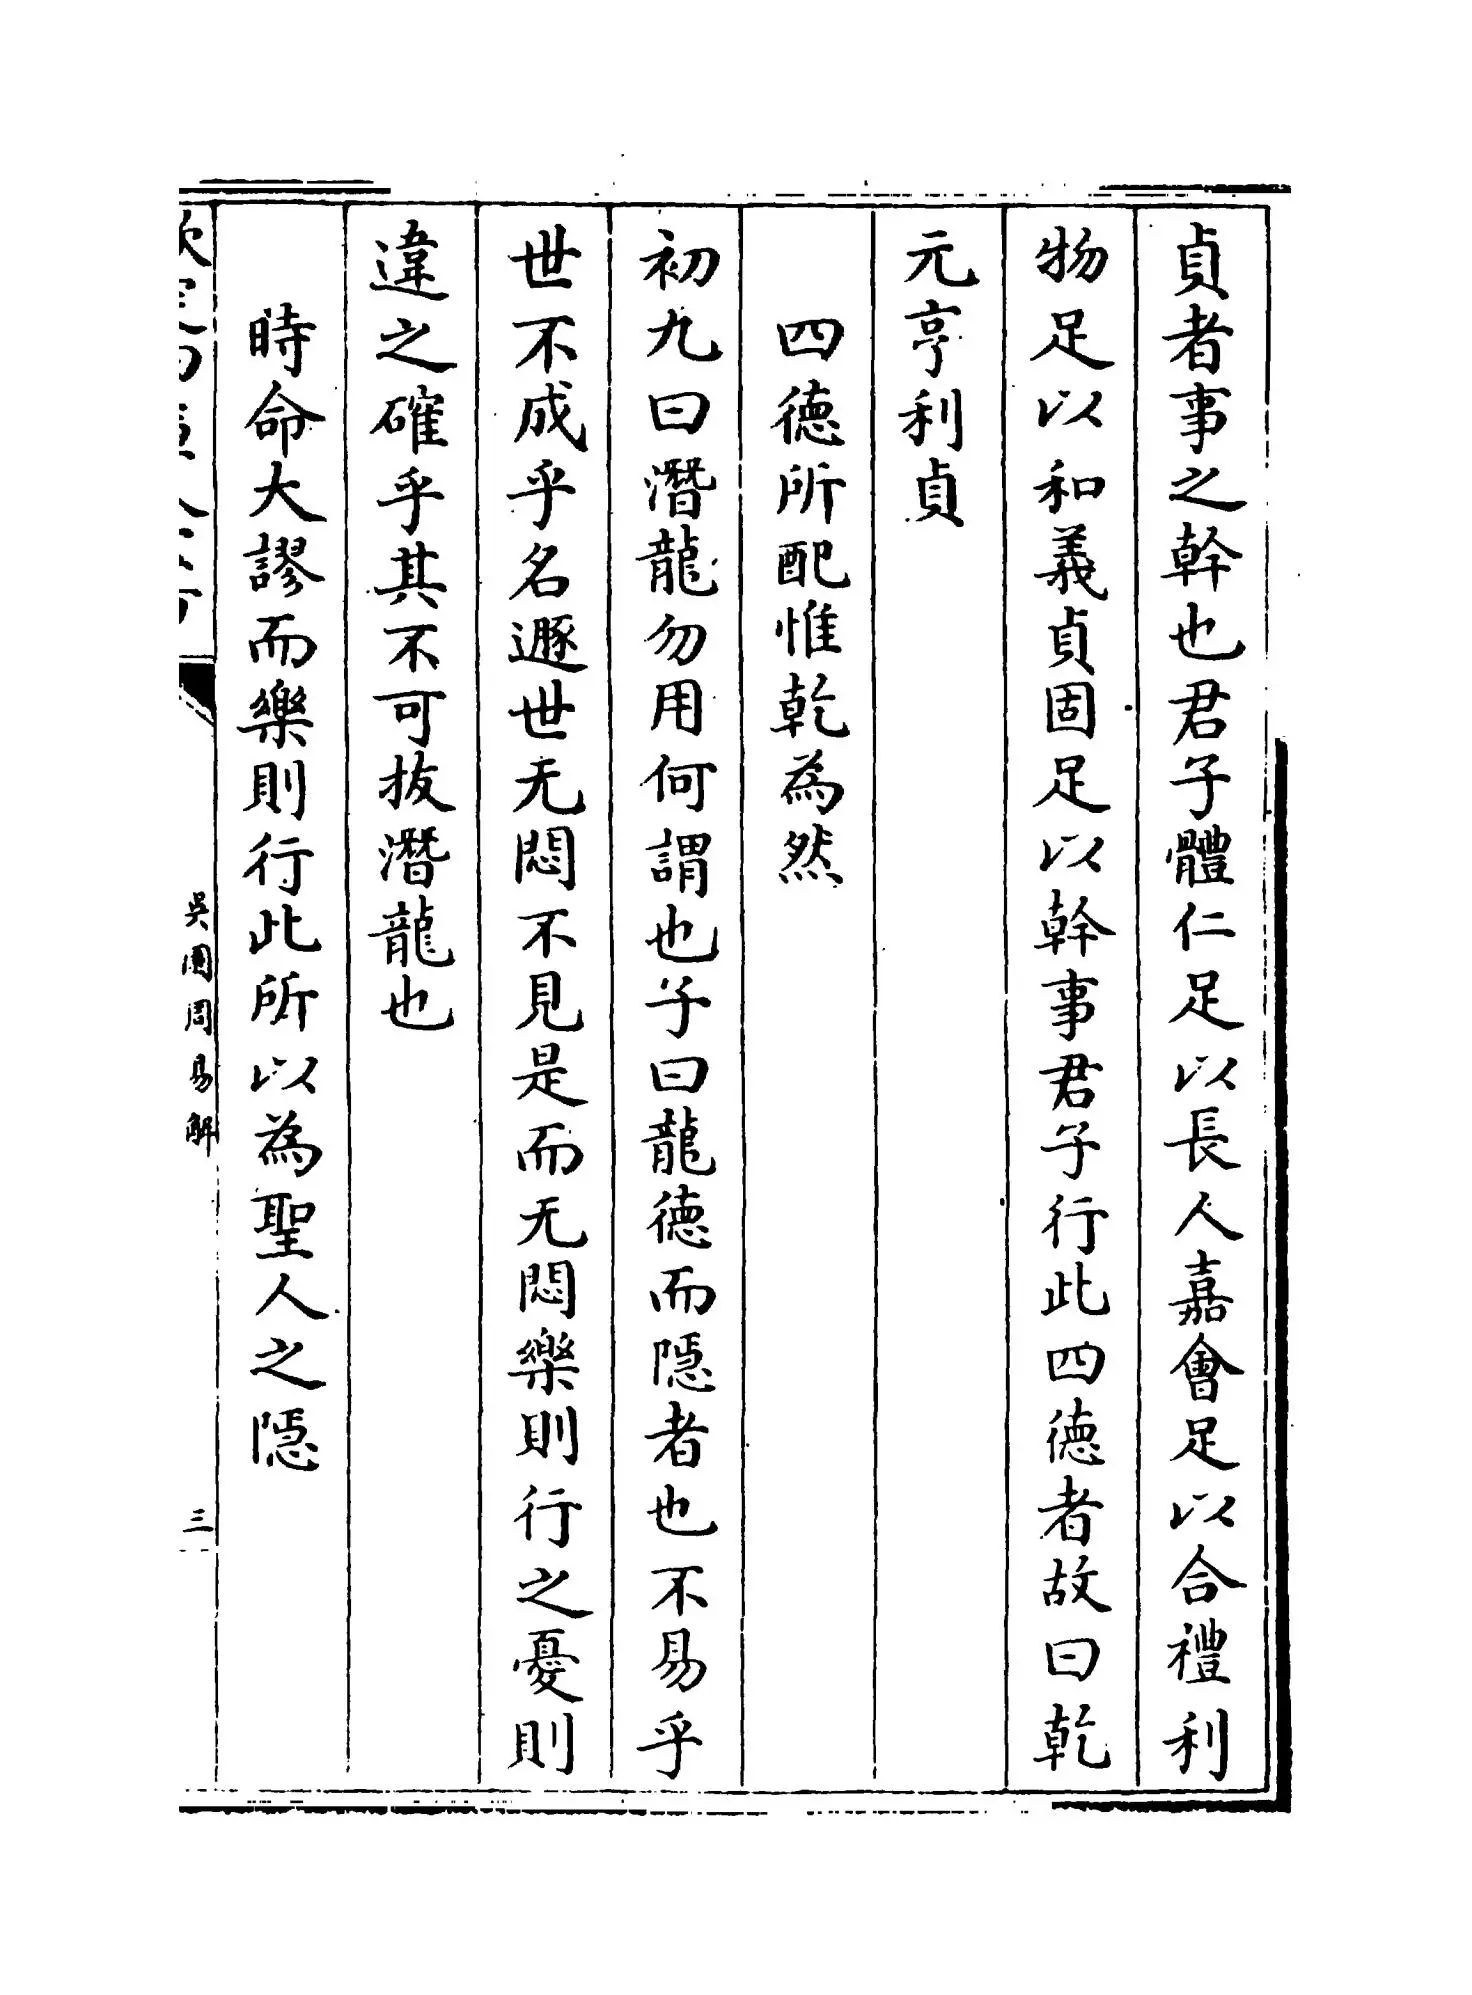 貞者事之幹也君子體仁足以長人嘉會足以合禮利
物足以和義貞固足以幹事君子行此四德者故曰乾
元亨利貞
四德所配惟乾為然
初九曰潛龍勿用何謂也子曰龍德而隱者也不易乎
世不成乎名遯世无悶不見是而无悶樂則行之憂則
違之確乎其不可拔潛龍也
時命大謬而樂則行此所以為聖人之隱
吳園周易解
三